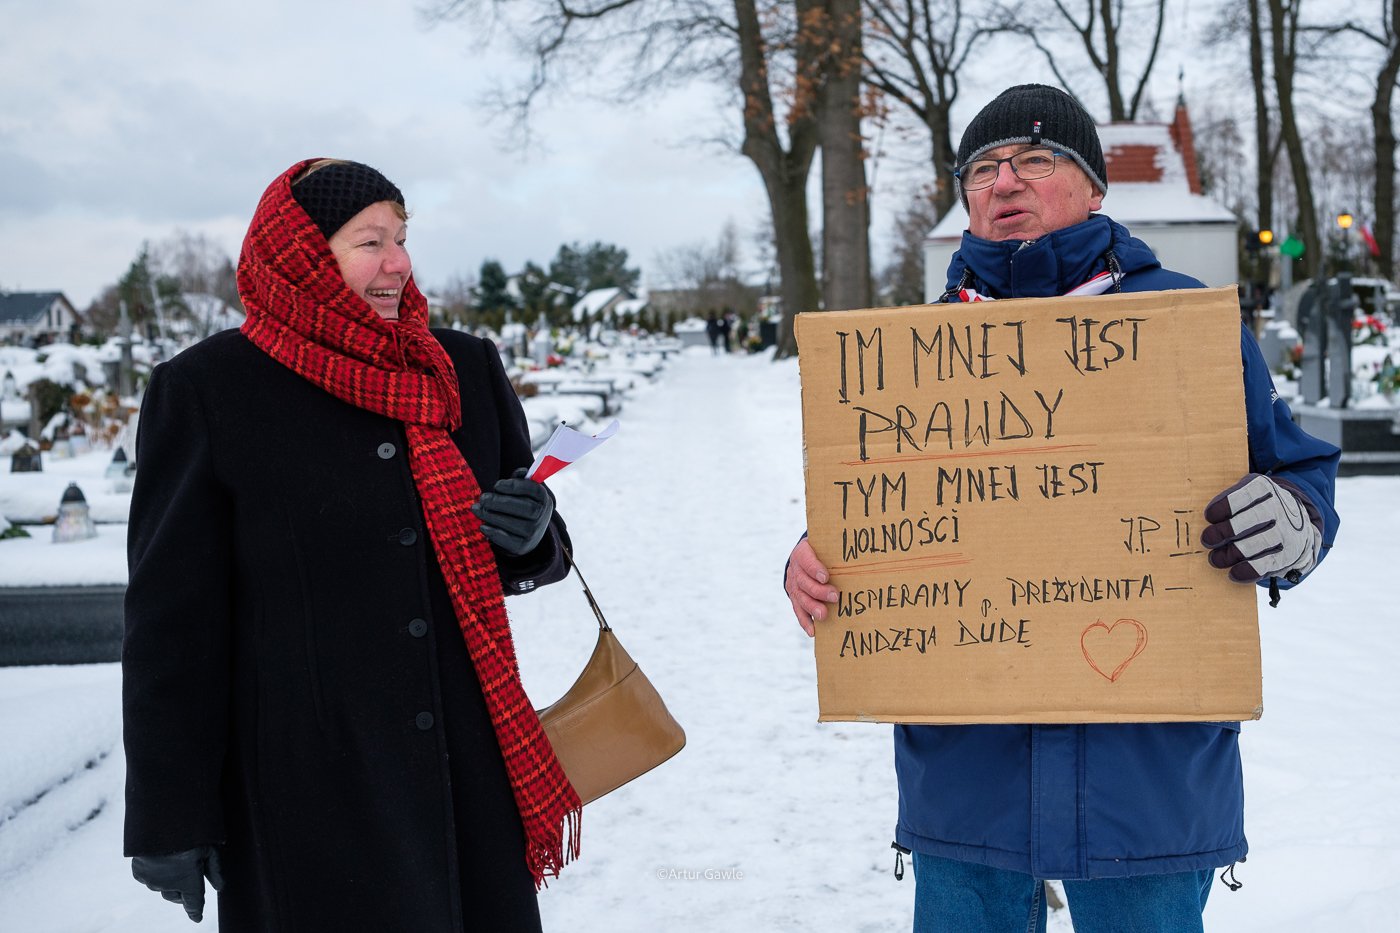 IM MNEJ JEST
PRAWDY
TYM MNEJ JEST
WOLNOŚCI
J.P. II
WSPIERAMY p. PREZYDENTA —
ANDZEJA DUDĘ
©Artur Gawle